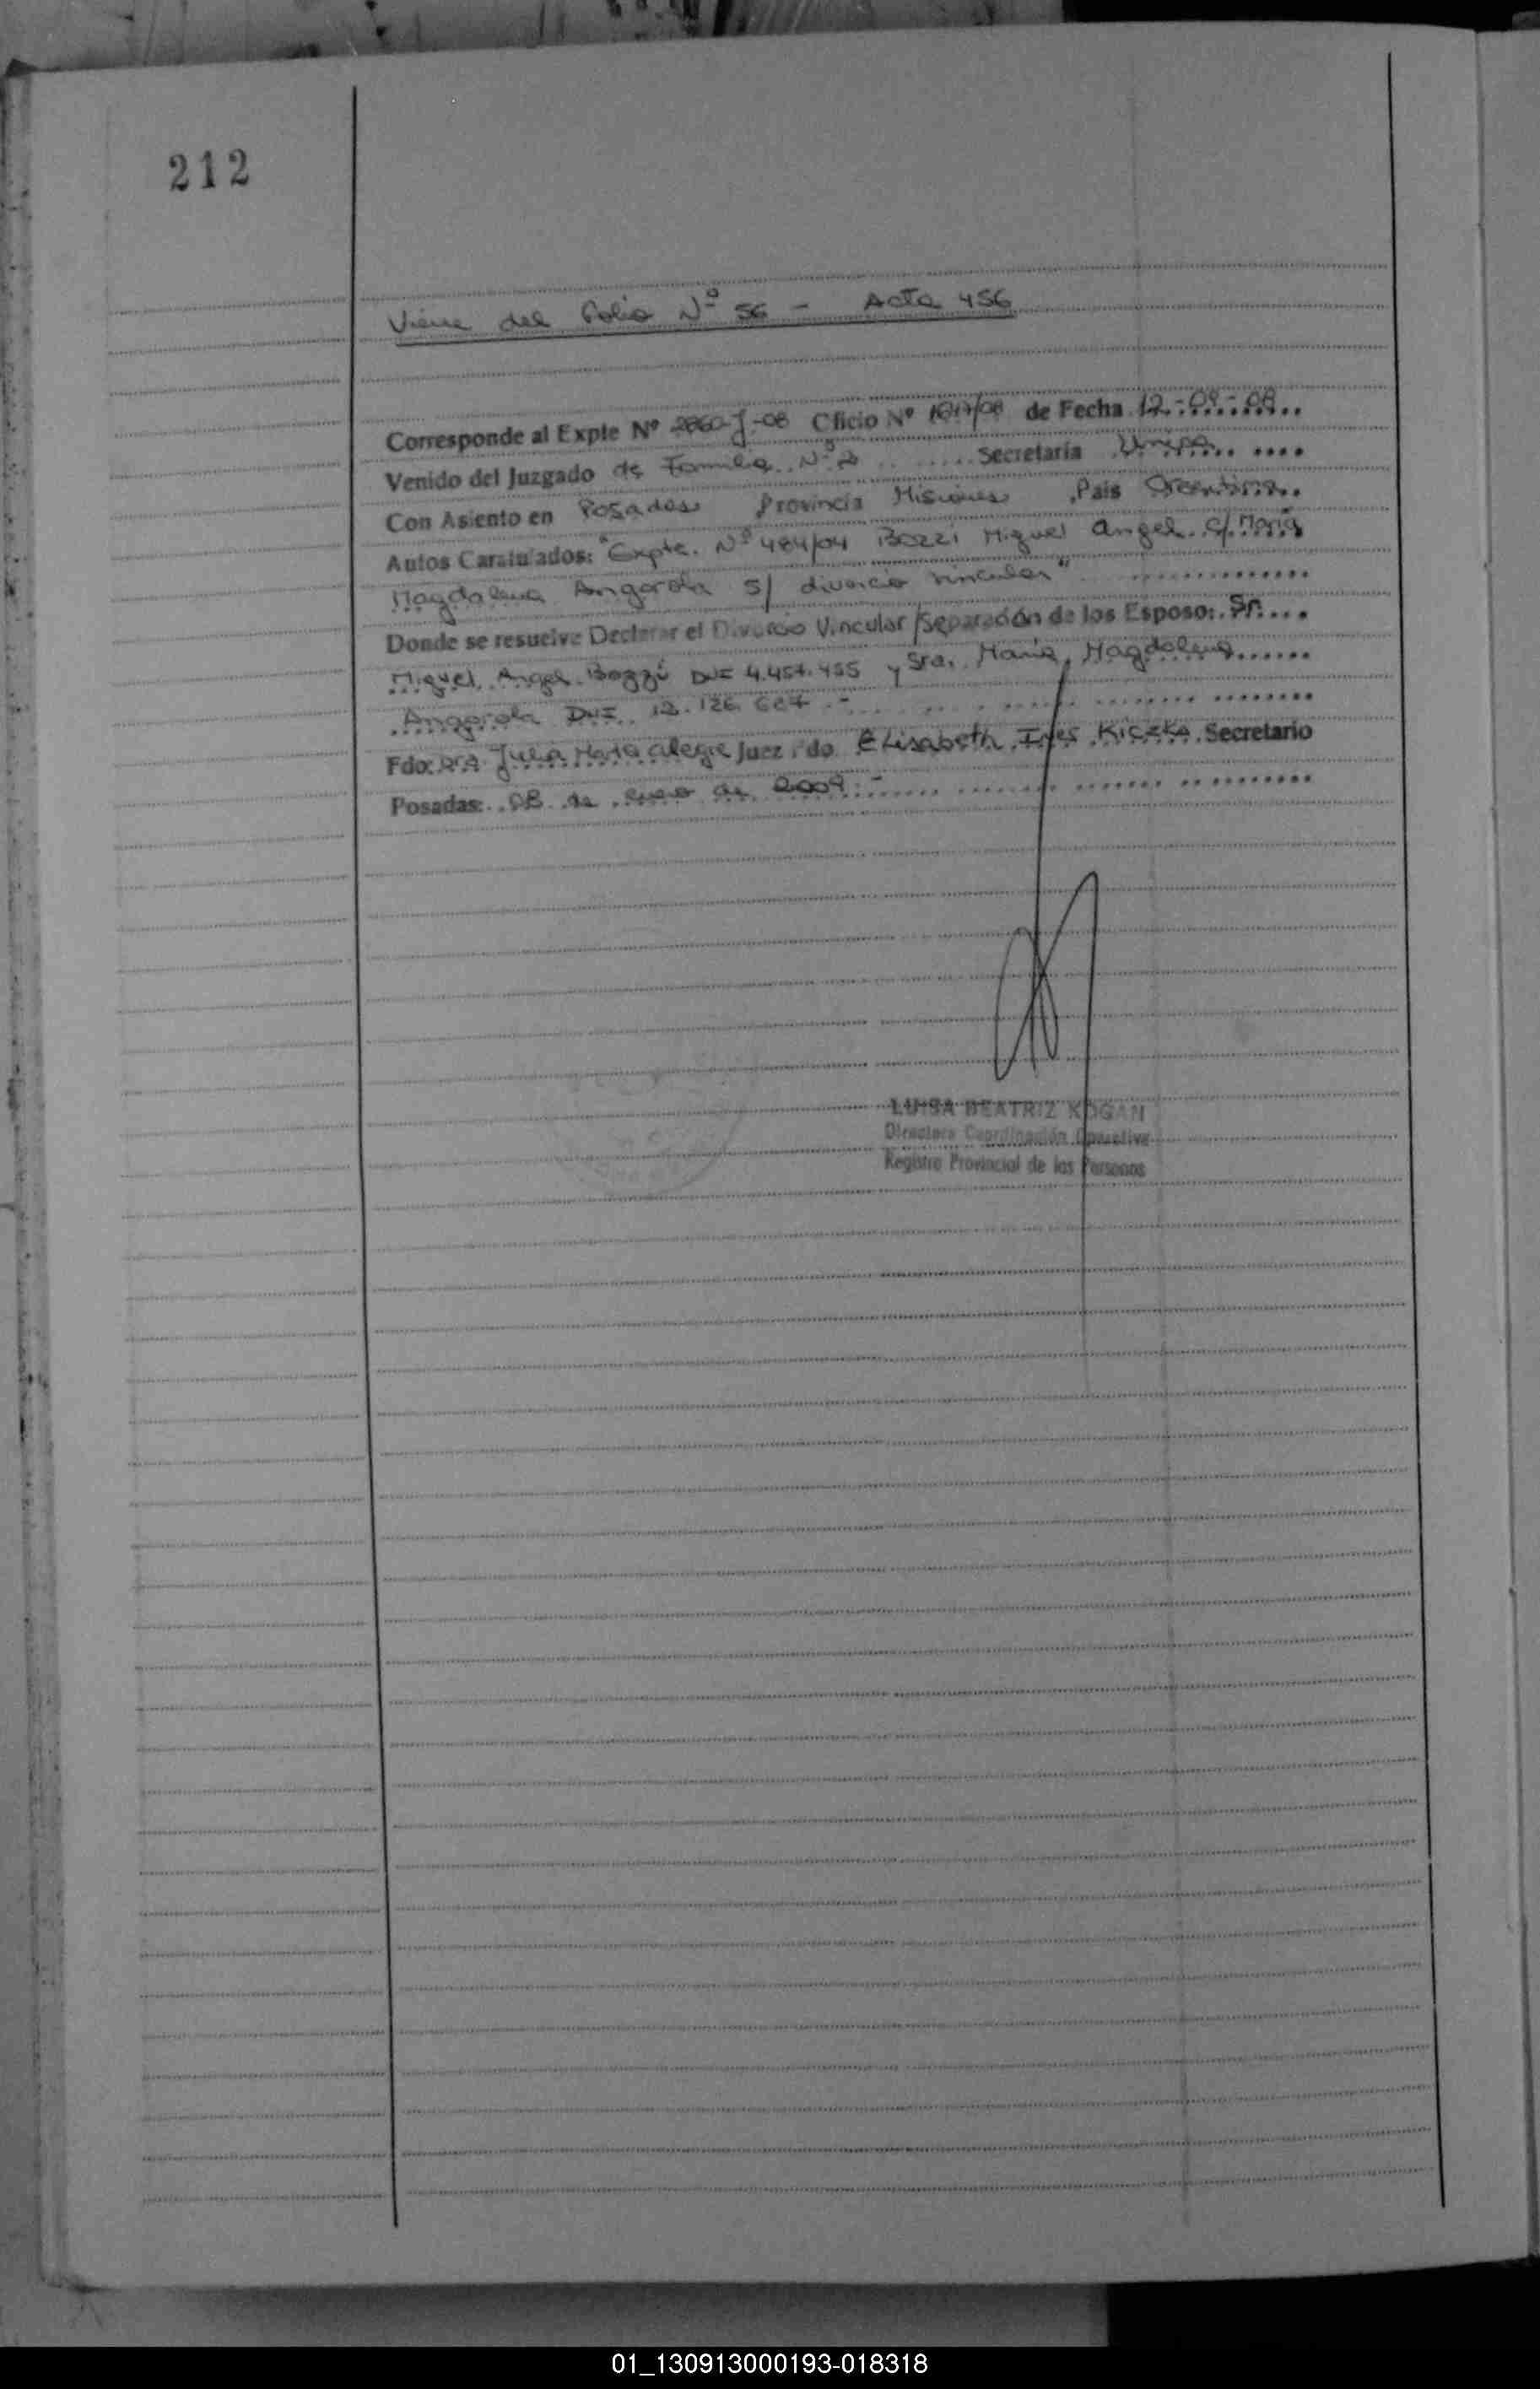 212
Viene del Folio Nº 56 - Acta 456
Corresponde al Expte Nº 2860-J-08 Oficio Nº /08 de Fecha 12-09-08
Venido del Juzgado de Familia Nº 2 Secretaría Única
Con Asiento en Posadas Provincia Misiones País Argentina
Autos Caratulados: "Expte. Nº 484/04 Bozzi Miguel Angel c/ María
Magdalena Angarola s/ divorcio vincular"
Donde se resuelve Declarar el Divorcio Vincular/Separación de los Esposo: Sr.
Miguel Angel Bozzi DNI 4.454.455 y Sra. María Magdalena
Angarola DNI 12.126.627.-
Fdo: Dra Julia María Alegre Juez Fdo. Elisabeth Ines Kiczka Secretario
Posadas: 08 de enero de 2009.-
LUISA BEATRIZ KOGAN
Directora Coordinación Operativa
Registro Provincial de las Personas
01_130913000193-018318